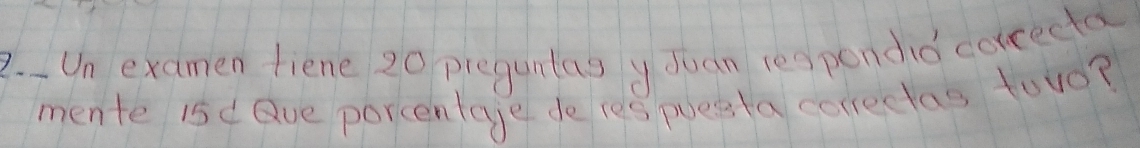 2.- Un examen tiene 20 preguntas y Juan respondió correcta
mente 15 ¿Que porcentaje de respuesta correctas tuvo?